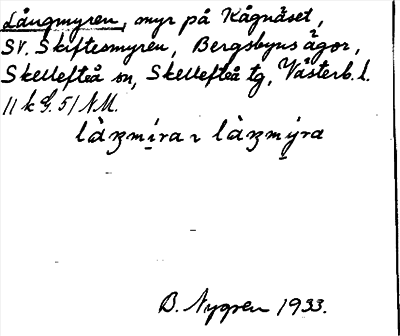 Långmyren, myr på Kågnäset,
SV. Skiftesmyren, Bergsbyns ägor,
Skellefteå sn, Skellefteå tg, Västerb. l.
11 k
B. Nygren 1933.